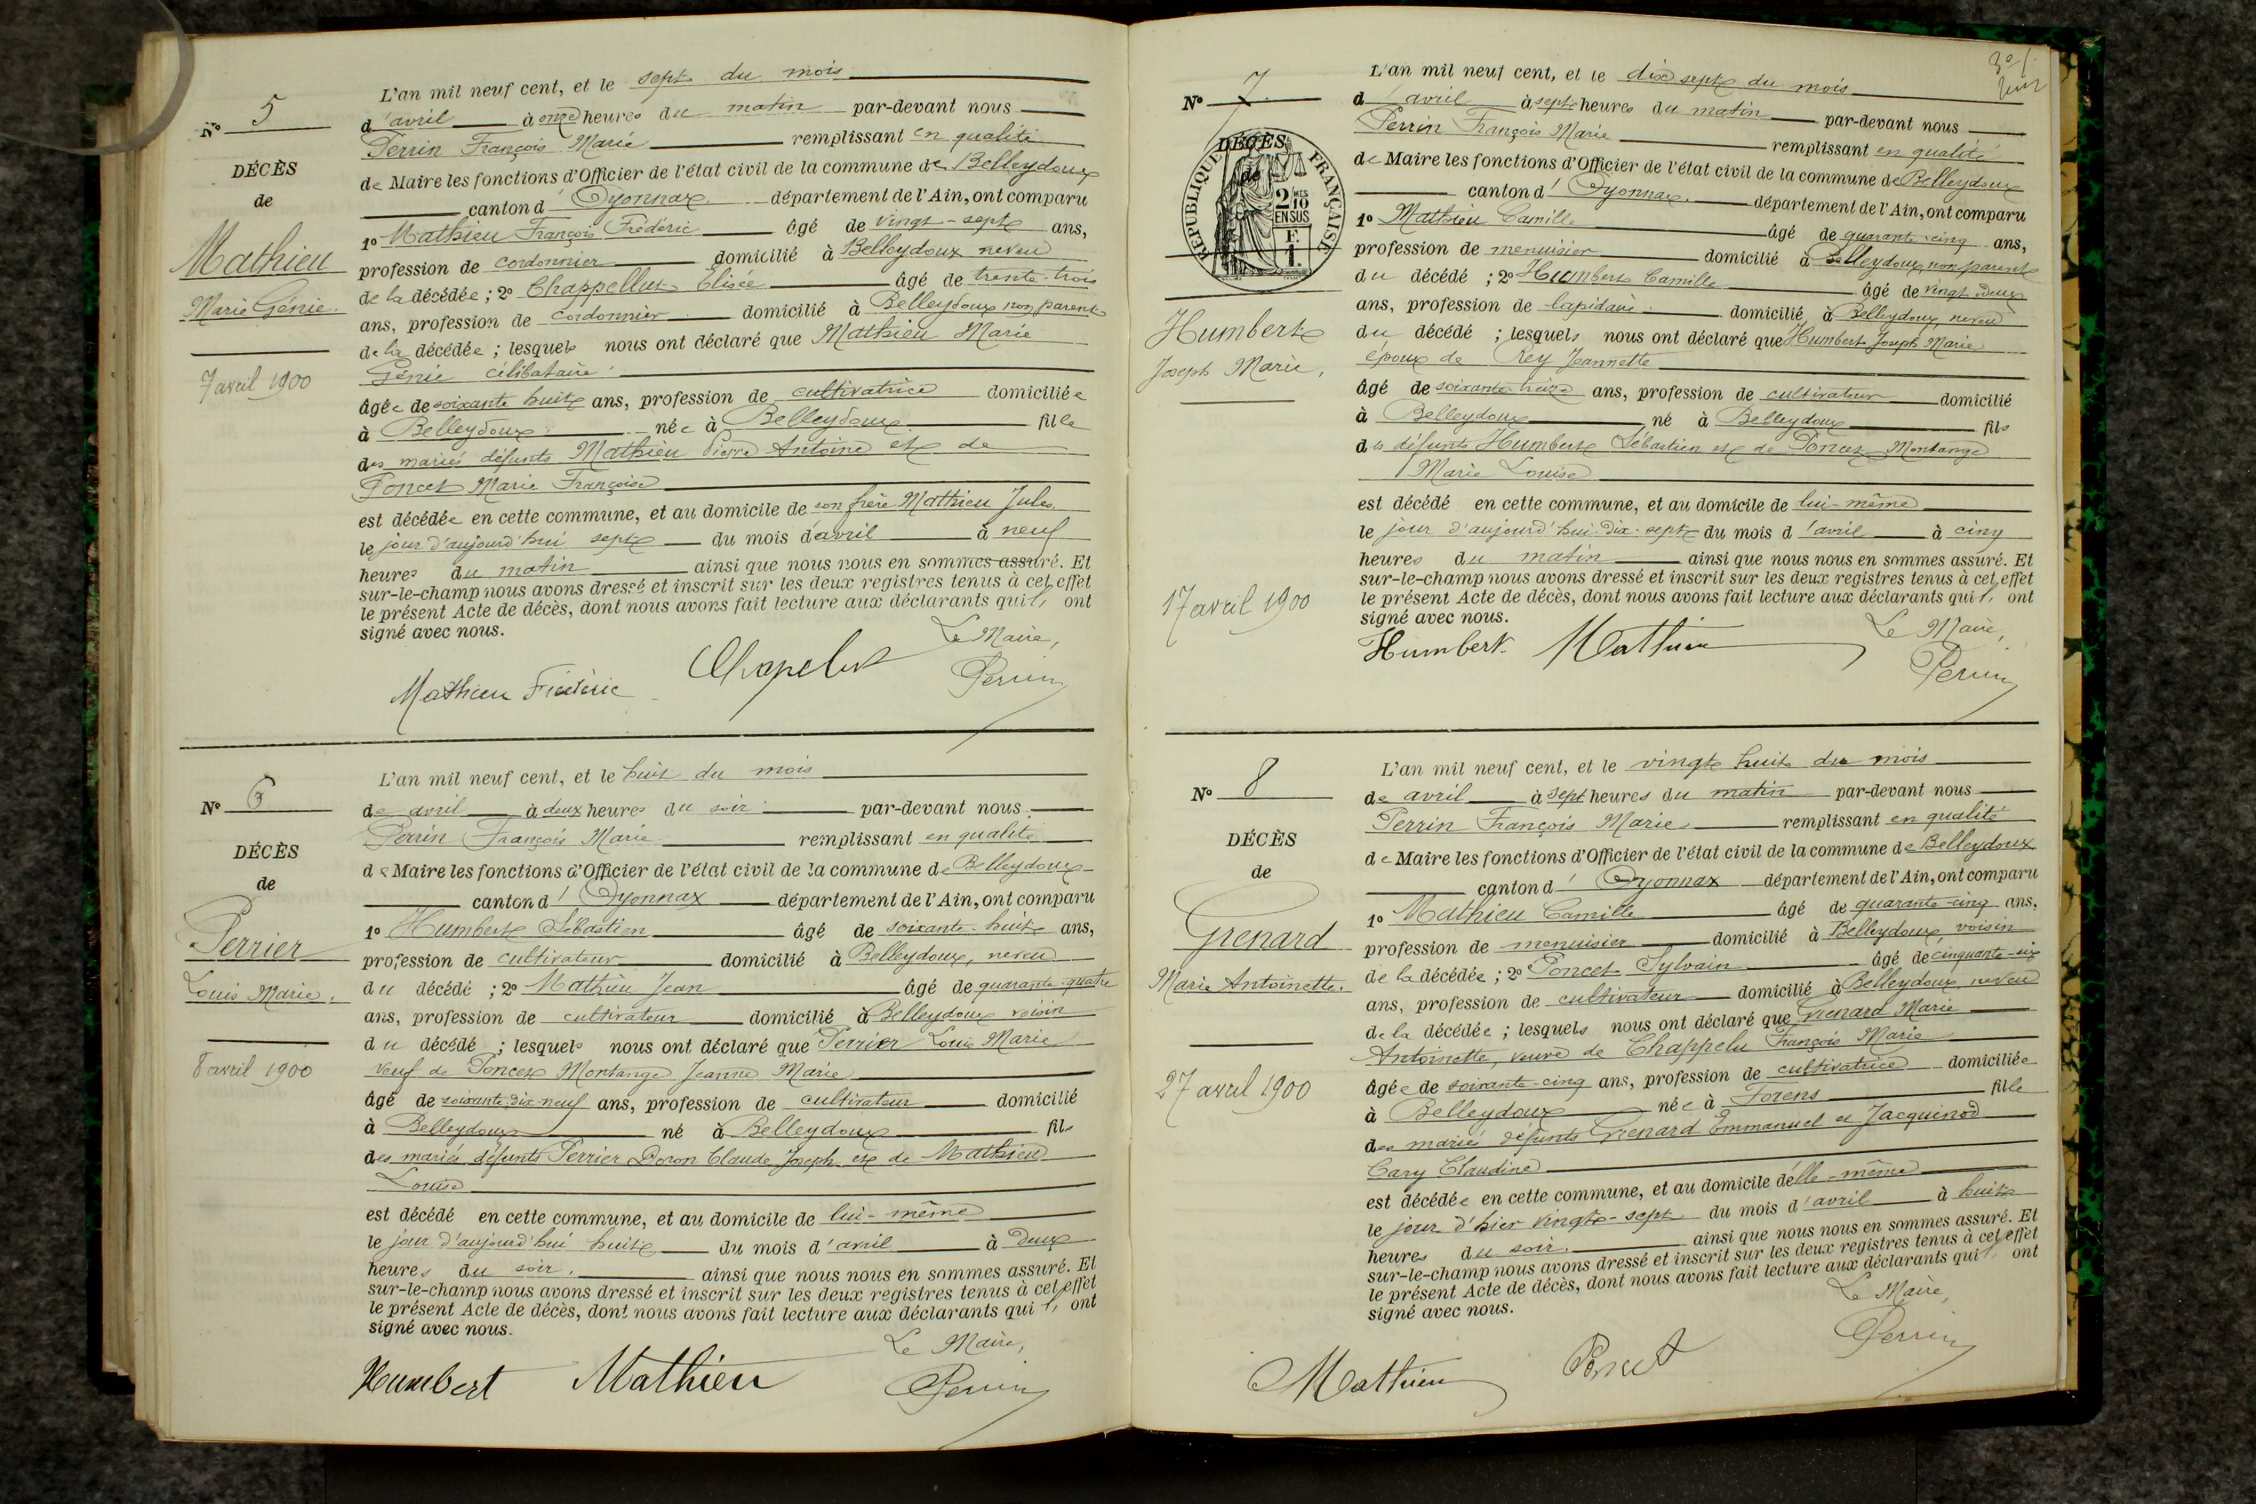 N° 5
DÉCÈS
de
Mathieu
Marie Génie.
7 avril 1900
L'an mil neuf cent, et le sept du mois
d'avril à onze heures du matin par-devant nous
Perrin François Marie remplissant en qualité
de Maire les fonctions d'Officier de l'état civil de la commune de Belleydoux
canton d'Oyonnax département de l'Ain, ont comparu
1° Mathieu François Frédéric âgé de vingt-sept ans,
profession de cordonnier domicilié à Belleydoux neveu
de la décédée ; 2° Chappellut Elisée âgé de trente-trois
ans, profession de cordonnier domicilié à Belleydoux non parent
de la décédée ; lesquels nous ont déclaré que Mathieu Marie
Génie célibataire
âgée de soixante huit ans, profession de cultivatrice domiciliée
à Belleydoux née à Belleydoux fille
des mariés défunts Mathieu Pierre Antoine et de
Poncet Marie Françoise
est décédée en cette commune, et au domicile de son frère Mathieu Jules
le jour d'aujourd'hui sept du mois d'avril à neuf
heures du matin ainsi que nous nous en sommes assuré. Et
sur-le-champ nous avons dressé et inscrit sur les deux registres tenus à cet effet
le présent Acte de décès, dont nous avons fait lecture aux déclarants qu'ils ont
signé avec nous.
Le Maire,
Mathieu Frédéric Chapelut Perrin
N° 6
DÉCÈS
de
Perrier
Louis Marie.
8 avril 1900
L'an mil neuf cent, et le huit du mois
de avril à deux heures du soir par-devant nous
Perrin François Marie remplissant en qualité
de Maire les fonctions d'Officier de l'état civil de la commune de Belleydoux
canton d'Oyonnax département de l'Ain, ont comparu
1° Humbert Sébastien âgé de soixante-huit ans,
profession de cultivateur domicilié à Belleydoux, neveu
du décédé ; 2° Mathieu Jean âgé de quarante-quatre
ans, profession de cultivateur domicilié à Belleydoux voisin
du décédé ; lesquels nous ont déclaré que Perrier Louis Marie
veuf de Poncet Montange Jeanne Marie
âgé de soixante-dix-neuf ans, profession de cultivateur domicilié
à Belleydoux né à Belleydoux fils
des mariés défunts Perrier Doron Claude Joseph et de Mathieu
Louise
est décédé en cette commune, et au domicile de lui-même
le jour d'aujourd'hui huit du mois d'avril à deux
heures du soir. ainsi que nous nous en sommes assuré. Et
sur-le-champ nous avons dressé et inscrit sur les deux registres tenus à cet effet
le présent Acte de décès, dont nous avons fait lecture aux déclarants qu'ils ont
signé avec nous.
Le Maire,
Humbert Mathieu Perrin
N° 7
DÉCÈS
de
RÉPUBLIQUE FRANÇAISE
2/10
EN SUS
1
Humbert
Joseph Marie,
17 avril 1900
L'an mil neuf cent, et le dix sept du mois
d'avril à sept heures du matin par-devant nous
Perrin François Marie remplissant en qualité
de Maire les fonctions d'Officier de l'état civil de la commune de Belleydoux
canton d'Oyonnax. département de l'Ain, ont comparu
1° Mathieu Camille âgé de quarante-cinq ans,
profession de menuisier domicilié à Belleydoux, non parent
du décédé ; 2° Humbert Camille âgé de vingt-deux
ans, profession de lapidaire domicilié à Belleydoux, neveu
du décédé ; lesquels nous ont déclaré que Humbert Joseph Marie
époux de Rey Jeannette
âgé de soixante-treize ans, profession de cultivateur domicilié
à Belleydoux né à Belleydoux fils
des défunts Humbert Sébastien et de Poncet Montange
Marie Louise
est décédé en cette commune, et au domicile de lui-même
le jour d'aujourd'hui dix-sept du mois d'avril à cinq
heures du matin ainsi que nous nous en sommes assuré. Et
sur-le-champ nous avons dressé et inscrit sur les deux registres tenus à cet effet
le présent Acte de décès, dont nous avons fait lecture aux déclarants qu'ils ont
signé avec nous.
Le Maire,
Humbert. Mathieu Perrin
N° 8
DÉCÈS
de
Grenard
Marie Antoinette.
27 avril 1900
L'an mil neuf cent, et le vingt huit du mois
de avril à sept heures du matin par-devant nous
Perrin François Marie remplissant en qualité
de Maire les fonctions d'Officier de l'état civil de la commune de Belleydoux
canton d'Oyonnax département de l'Ain, ont comparu
1° Mathieu Camille âgé de quarante-cinq ans,
profession de menuisier domicilié à Belleydoux voisin
de la décédée ; 2° Poncet Sylvain âgé de cinquante-six
ans, profession de cultivateur domicilié à Belleydoux neveu
de la décédée ; lesquels nous ont déclaré que Grenard Marie
Antoinette, veuve de Chappelu François Marie
âgée de soixante-cinq ans, profession de cultivatrice domiciliée
à Belleydoux née à Forens fille
des mariés défunts Grenard Emmanuel et Jacquinod
Cary Claudine
est décédée en cette commune, et au domicile d'elle-même
le jour d'hier vingt-sept du mois d'avril à huit
heures du soir. ainsi que nous nous en sommes assuré. Et
sur-le-champ nous avons dressé et inscrit sur les deux registres tenus à cet effet
le présent Acte de décès, dont nous avons fait lecture aux déclarants qu'ils ont
signé avec nous.
Le Maire,
Mathieu Poncet Perrin